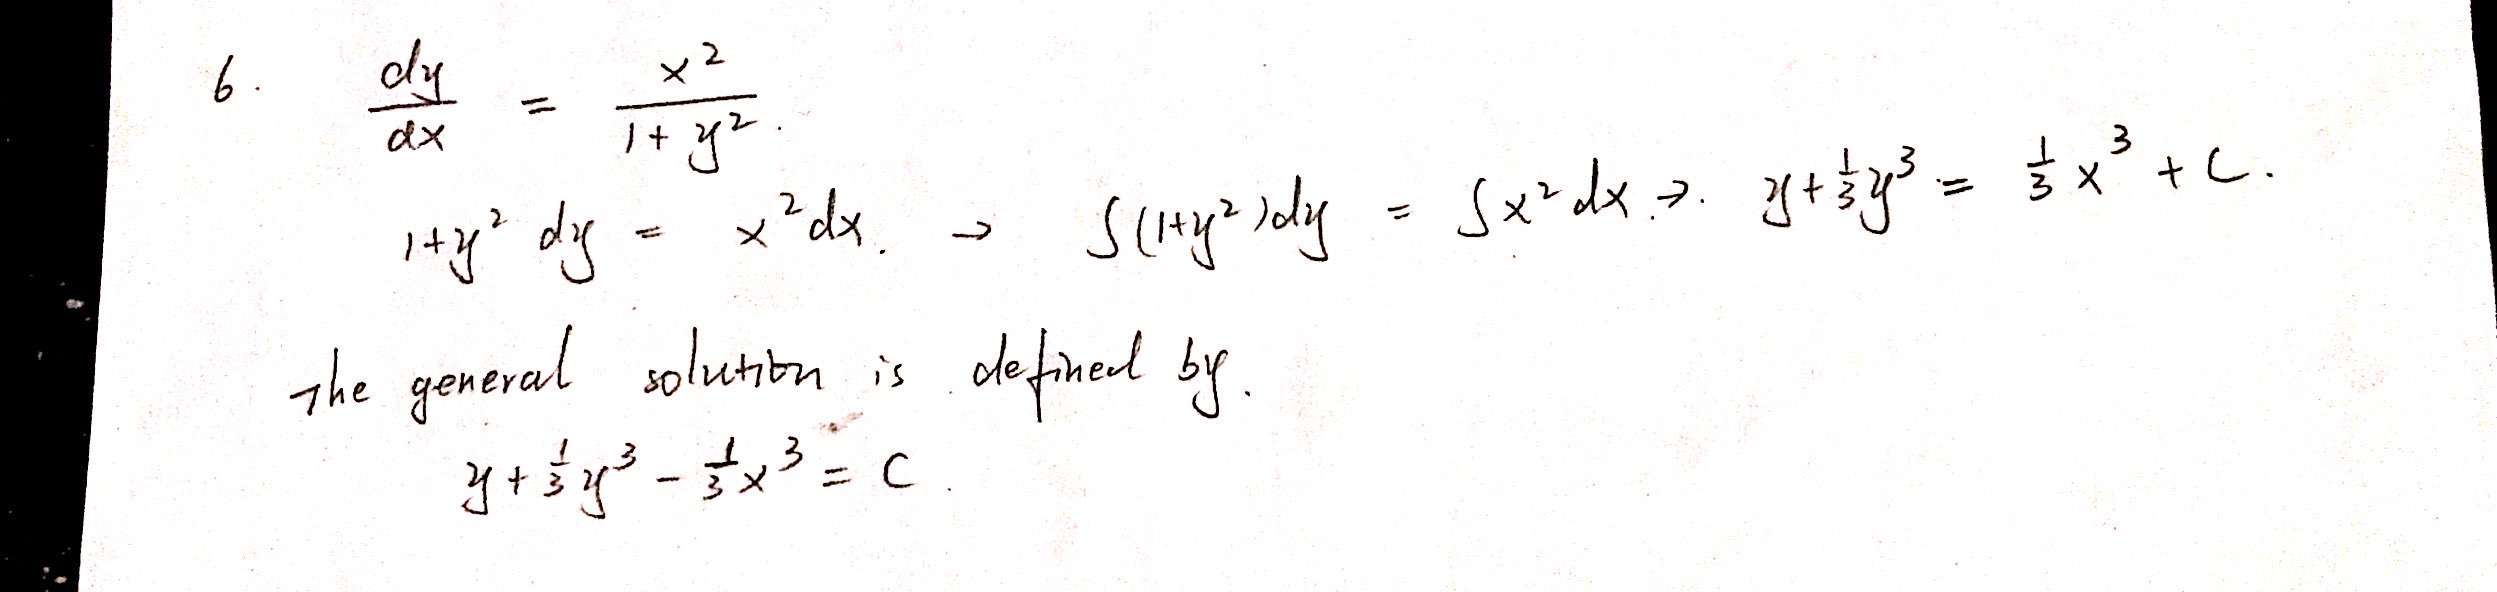 6. dy/dx = x²/(1+y²).
1+y² dy = x² dx. → ∫(1+y²)dy = ∫x² dx → y+⅓y³ = ⅓x³ + C.
The general solution is defined by.
y+⅓y³ - ⅓x³ = C.